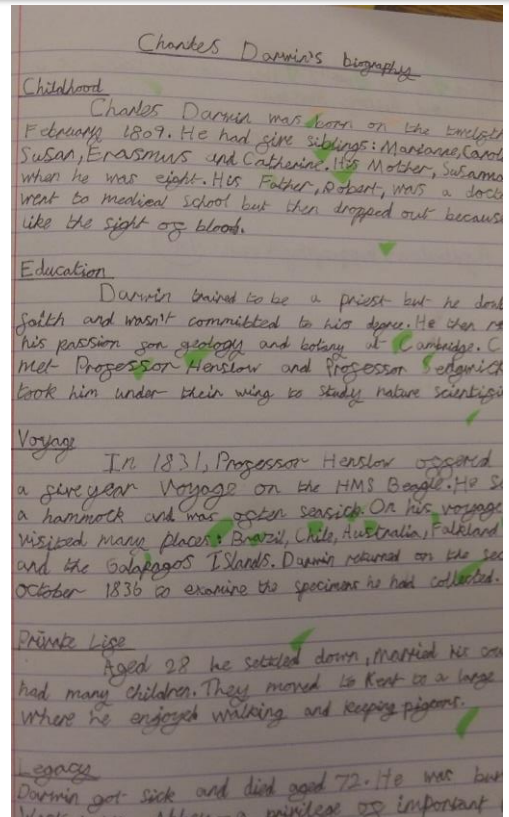 Charles Darwin's biography
Childhood
Charles Darwin was born on the twelfth
February 1809. He had five siblings: Marianne, Carol
Susan, Erasmus and Catherine. His Mother, Susanna
when he was eight. His Father, Robert, was a docto
went to medical school but then dropped out because
like the sight of blood.
Education
Darwin trained to be a priest but he doub
faith and wasn't committed to his degree. He then re
his passion for geology and botany at Cambridge. C
met Professor Henslow and Professor Sedgwick
took him under their wing to study nature scientifi
Voyage
In 1831, Professor Henslow offered
a five year voyage on the HMS Beagle. He s
a hammock and was often seasick. On his voyage
visited many places: Brazil, Chile, Australia, Falkland
and the Galapagos Islands. Darwin returned on the sec
October 1836 to examine the specimens he had collected.
Private Life
Aged 28 he settled down, married his cou
had many children. They moved to Kent to a large
where he enjoyed walking and keeping pigeons.
Legacy
Darwin got sick and died aged 72. He was bur
a privilege of important